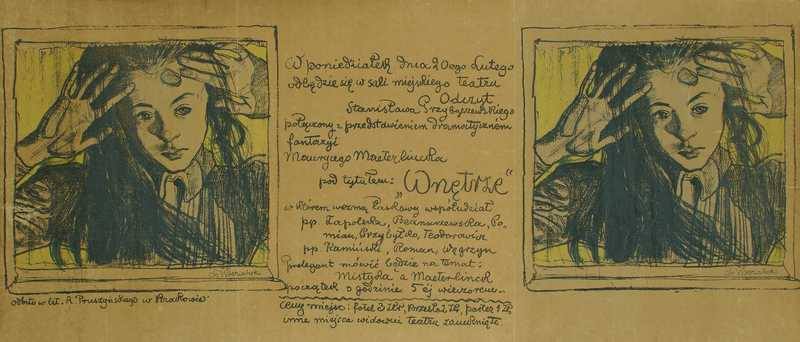 W poniedziałek dnia 20ego Lutego
odbędzie się w sali miejskiego teatru
Odczyt
Stanisława Przybyszewskiego
połączony z przedstawieniem dramatycznem
fantazyi
Maurycego Maeterlincka
pod tytułem: „Wnętrze“
w którem wezmą łaskawy współudział
pp. Zapolska, Bednarzewska, Po-
mian, Przybyłko, Teodorowicz
pp. Kamiński, Roman, Węgrzyn
Prelegent mówić będzie na temat:
Mistyka a Maeterlinck
początek o godzinie 5 ej wieczorem.
Ceny miejsc: fotel 3 złr, krzesło 2 złr, parter 1 zł
inne miejsca widowni teatru zamknięte.
St. Wyspiański
St. Wyspiański
odbito w lit. A. Pruszyńskiego w Krakowie